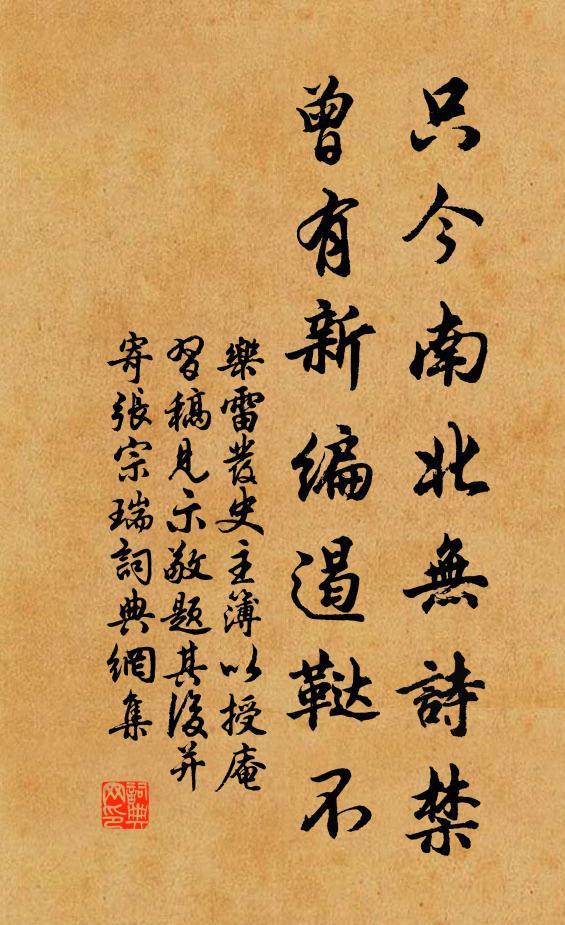 只今南北無詩禁
曾有新编遏鞑不
樂雷發史主簿以授庵
習稿見示敬題其後并
寄張宗瑞詞典網集
詞典网印